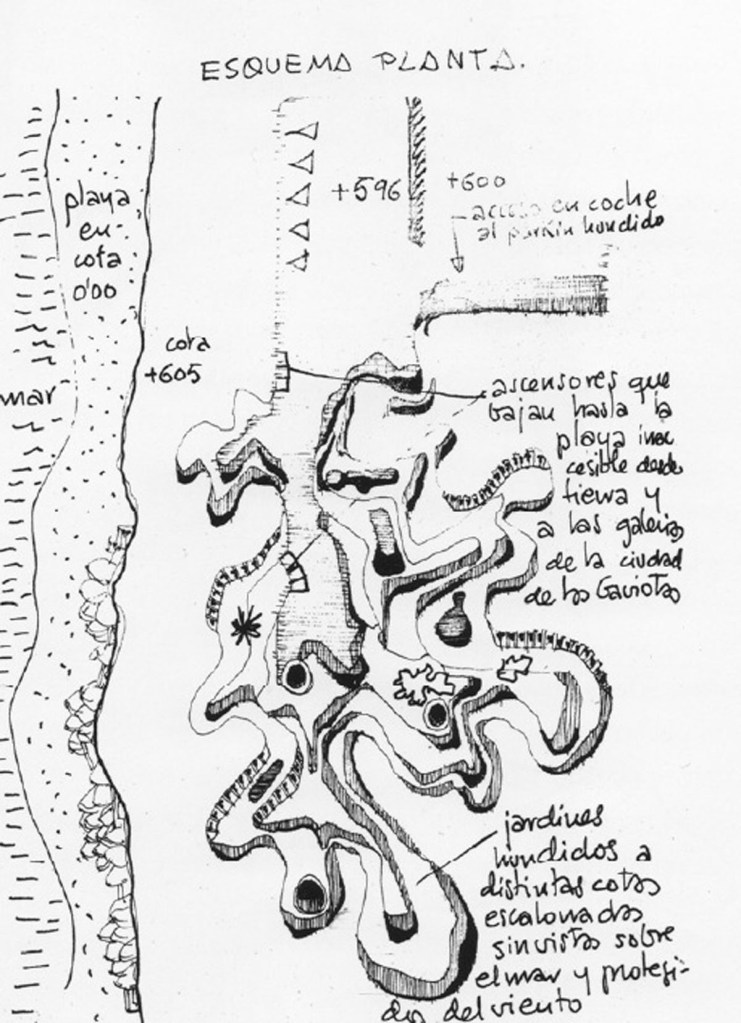 ESQUEMA PLANTA.
+596
+600
acceso en coche
al parkin hundido
playa
en
cota
0'00
cota
+605
mar
ascensores que
bajan hasta la
playa inac
cesible desde
tierra y
a las galerias
de la ciudad
de las Gaviotas
jardines
hundidos a
distintas cotas
escalonadas
sin vistas sobre
el mar y protegi-
dos del viento